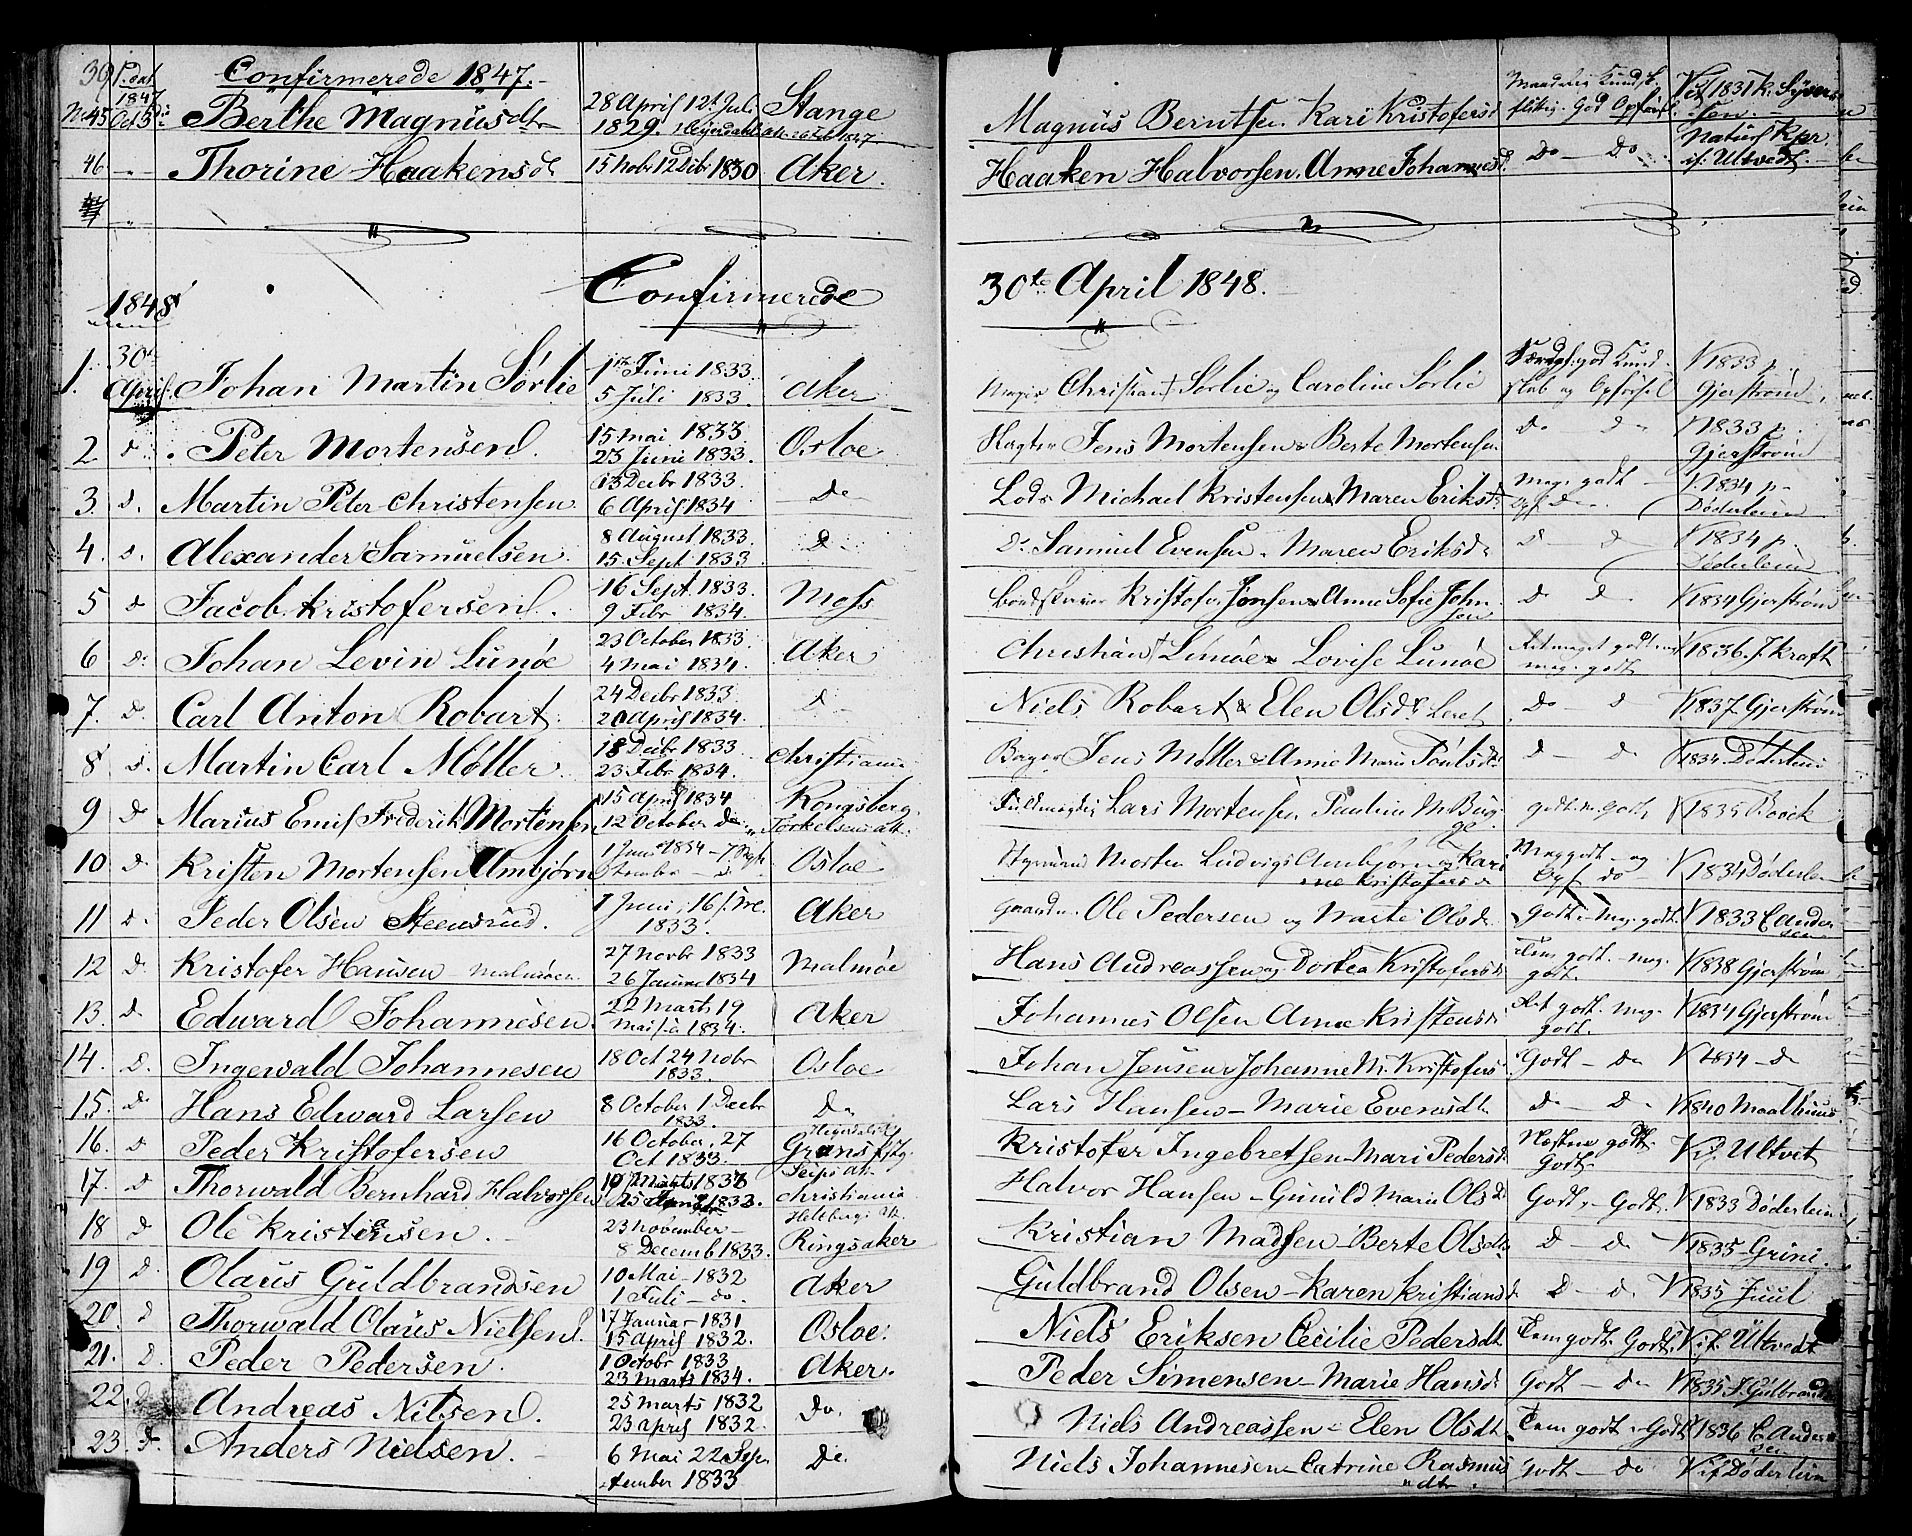 30 Confirmerede 1847.
1847
No 45 Berthe Magnusdtr 28 April 12t Juli 1829. Stange Magnus Berntsen Kari Kristofersd God V 1831 K.
46 Thorine Haakensd 15 Nobr 12 Decbr 1830 Aker. Haaken Halvorsen. Anne Johannesd. Do — Do Naturl. Kpr. if. Ultvedt.
1848
Confirmerede 30te April 1848.
1. 30te April. Johan Martin Sørlie 1ste Juni 1833. 5 Juli 1833. Aker Christian † Sørlie og Caroline Sørlie god Kundskab og Opførsel V 1833 p. Gjerstrøm
2 d. Peter Mortensen. 15 mai 1833. 23 Juni 1833. Osloe Jens Mortensen & Berte Mortensen do do V 1833 p. Gjerstrøm
3. d. Martin Peter Christensen 13 Decbr 1833. 6 April 1834 Do Michael Kristensen & Maren Eriksd. Meg. godt Opf. Do V 1834 p. Døderlein
4. d. Alexander Samuelsen 8 August 1833. 15 Sept 1833 D. Do Samuel Evensen. Maren Eriksd. D — D V 1834 p. Døderlein
5 d Jacob Kristofersen. 16 Sept. 1833. 9 Febr 1834. Moss Kristofer Jonsen & Anne Sofie Johnsen D D V 1834 Gjerstrøm
6 d. Johan Levin Lunøe 23 October 1833 4 Mai 1834. Aker Christian † Lunøe & Lovise Lunøe meg. godt V 1836. J. Kraft
7. d. Carl Anton Robart. 24 Decbr 1833. 20 April 1834. d Niels Robart & Elen Olsdt. Leret Do — d V 1837. Gjerstrøm
8 d. Martin Carl Møller. 18 Decbr 1833. 23 Febr 1834. Christiania Borger Jens Møller & Anne Marie Poulsdt. D — D V 1834. Døderlein
9 d Marius Emil Frederik Mortensen 15 April 1834 12 October do. Kongsberg Torkelsens att. Lars Mortensen Pauline M. Bugge godt. M. Godt V 1835
10 d. Kristen Mortensen Ambjørn 1 Juni 1834 — 7 September — d. Osloe Styrmand Morten Ludvigs Ambjørn og Karine Kristofersd Meg godt — og Opf. do V 1834 Døderlein
11 d. Peder Olsen Steensrud. 7 Juni, 16 1833. Aker Gaardm. Ole Pedersen og Marte Olsd. Godt — meg. godt. V 1833 C. Andersen
12 d. Kristofer Hansen — Malmøen 27 Novbr 1833 26 Januar 1834 Malmøe Hans Andreassen og Dortea Kristofersd Tem. godt. — meg. godt. V 1838 Gjerstrøm
13. d. Edward Johannesen. 22 Marts 19 Mai 1834. Aker Johannes Olsen Anne Kristensd. godt. meg. godt. V 1834 Gjerstrøm
14. d. Ingewald Johannesen 18 Oct 24 Nobr 1833. Osloe. Johan Jensen & Johanne M. Kristofersd Godt — Do V 1834 — Do
15. d. Hans Edward Larsen 8 October 1 Decbr 1833. Do Lars Hansen — Marie Evensdt. D — D V 1840 Maalhuus
16. d Peder Kristofersen 16 October, 27 Oct 1833. Grans Kristofer Ingebretsen — Mari Pedersd. Næsten godt. Godt. V if. Ultvet
17. d Thorwald Bernhard Halvorsen 10 Marts 1833 25 1833. Christiania Halvor Hansen — Gunild Marie Olsd. Godt, — Godt. V 1833 Døderlein
18 d Ole Kristensen. 23 November — 8 Decemb 1833. Ringsaker Kristian Madsen — Berte Olsdt. D — D V 1835 — Grini.
19 d. Olaus Guldbrandsen 10 Mai — 1832 1 Juli — do. Aker Guldbrand Olsen — Karen Kristiansd. D — D. V 1835 Juul
20. d Thorwald Olaus Nielsen. 17 Januar 1831 15 April 1832. Osloe. Niels Eriksen Cecilie Pedersdt. Tem godt. Godt. V if. Ultvedt
21. d. Peder Pedersen. 1 Octobr 1833 23 Marts 1834. Aker. Peder Simensen — Marie Hansd. Godt — Do V 1835 J. Gulbrands
22. D Andreas Nilsen. 25 Marts 1832 23 April 1832. Do. Niels Andreassen — Elen Olsdt. Tem godt — Godt V 1836 C. Andersen
23. d. Anders Nielsen. 6 Mai 22 September 1833 Do. Niels Johannesen — Catrine Rasmusdtr. Godt — Do V if Døderlein